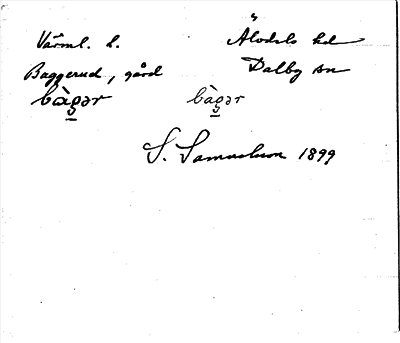 Värml. l. Älvdals hd
Baggerud, gård Dalby sn
bàgər bàgər
S. Samuelsson 1899